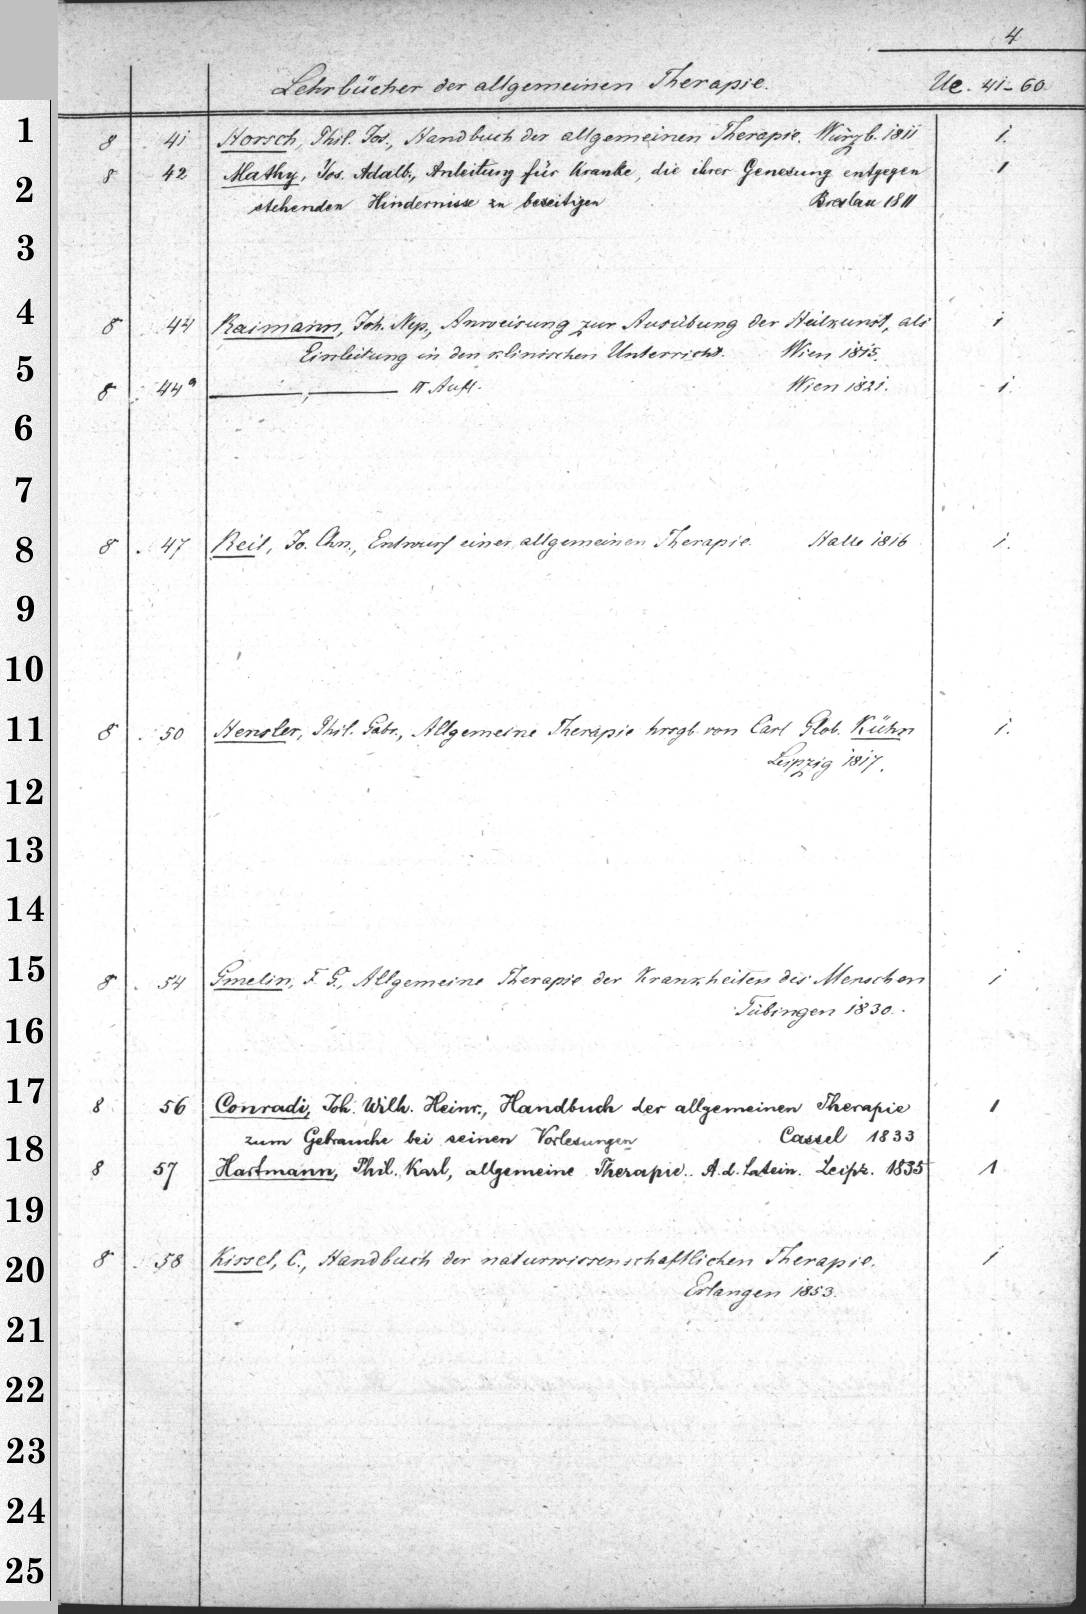 4
Lehrbücher der allgemeinen Therapie. Ue. 41-60.
1 8 41 Horsch, Phil. Jos., Handbuch der allgemeinen Therapie. Würzb. 1811 1.
2 8 42 Mathy, Jos. Adalb., Anleitung für Kranke, die ihrer Genesung entgegen 1
stehenden Hindernisse zu beseitigen Breslau 1811
3
4 8 44 Raimann, Joh. Nep., Anweisung zur Ausübung der Heilkunst, als 1
5 Einleitung in den klinischen Unterricht. Wien 1815.
8 44a ———, ——— II Aufl. Wien 1821. 1.
6
7
8 8 47 Reil, Jo. Chn., Entwurf einer allgemeinen Therapie. Halle 1816 1.
9
10
11 8 50 Hensler, Phil. Gabr., Allgemeine Therapie hrsgb. von Carl Glob. Kühn 1.
Leipzig 1817.
12
13
14
15 8 54 Gmelin, F. G., Allgemeine Therapie der Krankheiten des Menschen 1
Tübingen 1830.
16
17 8 56 Conradi, Joh. Wilh. Heinr., Handbuch der allgemeinen Therapie 1
18 zum Gebrauche bei seinen Vorlesungen Cassel 1833
8 57 Hartmann, Phil. Karl, allgemeine Therapie. A. d. Latein. Leipz. 1835 1
19
20 8 58 Kissel, C., Handbuch der naturwissenschaftlichen Therapie. 1
Erlangen 1853.
21
22
23
24
25